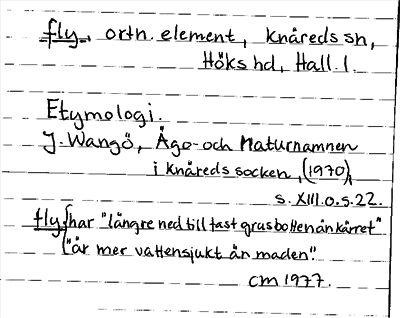 fly, ortn. element, Knäreds sn,
Höks hd, Hall. l.
Etymologi.
J. Wangö, Ägo- och Naturnamnen
i Knäreds socken, (1970),
s. XIII. o. s. 22.
fly har "längre ned till fast grusbotten än kärret"
"är mer vattensjukt än maden".
CM 1977.